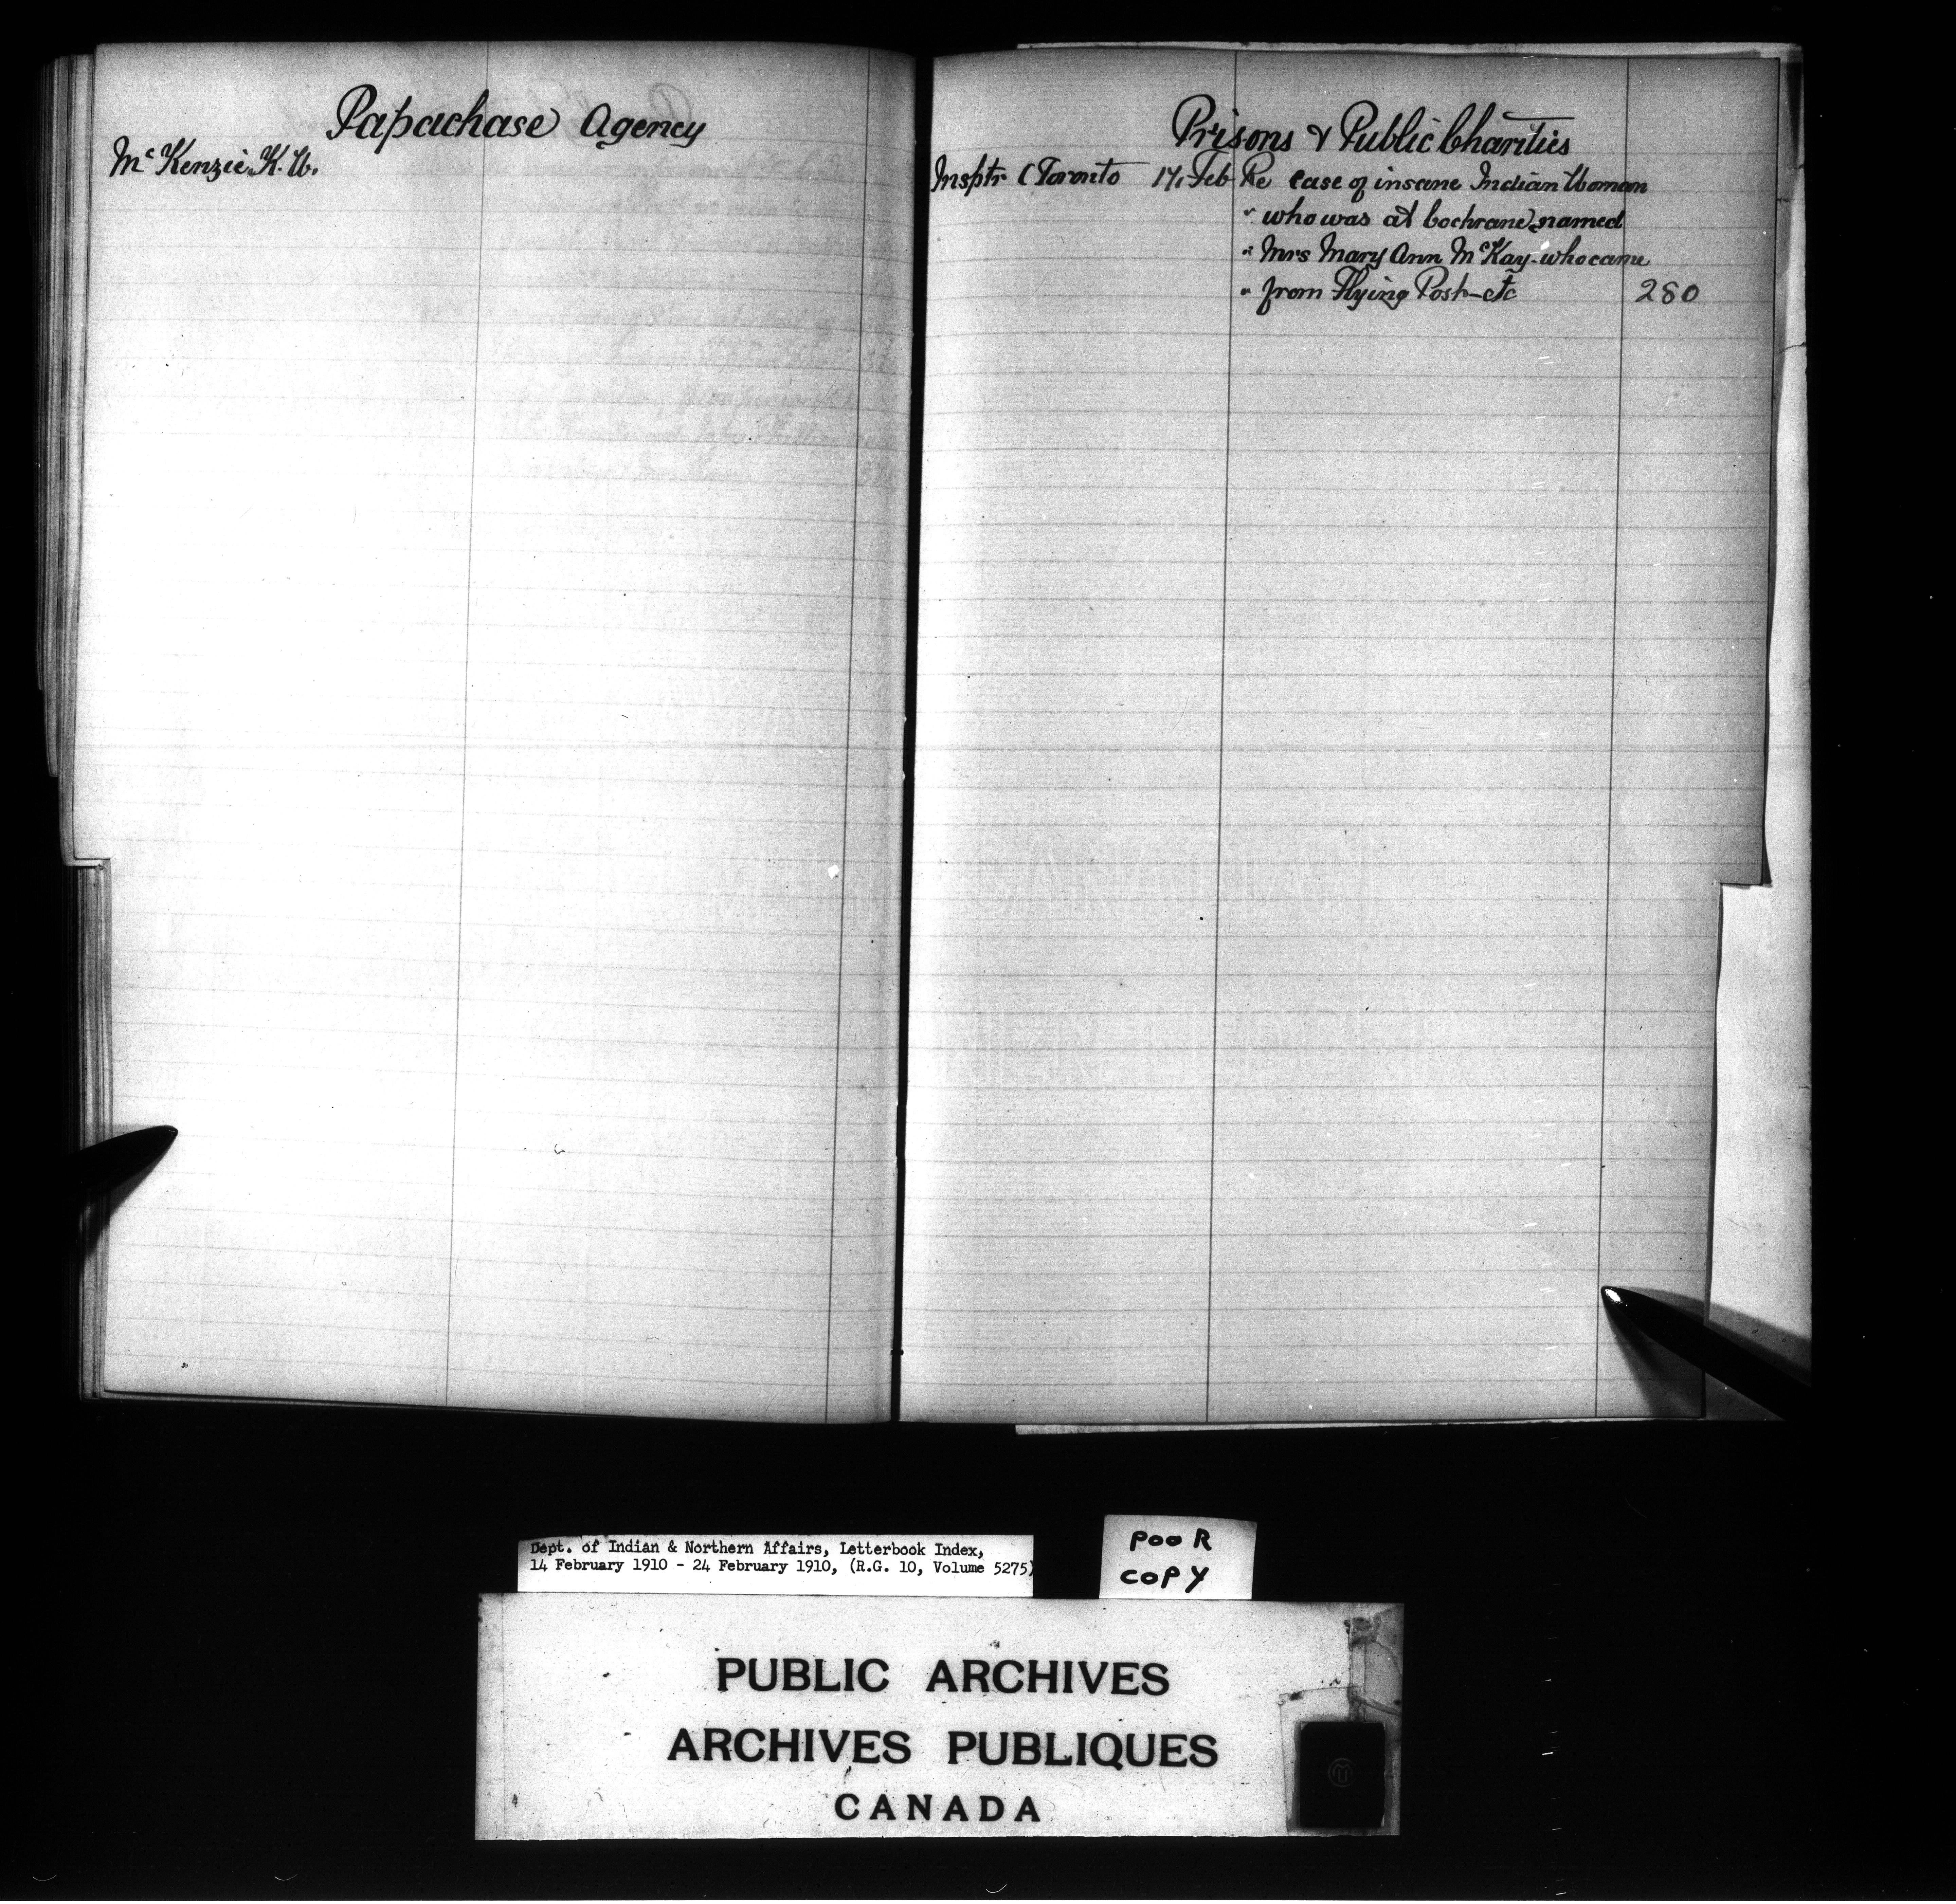 Papachase Agency
McKenzie K. W.
Prisons & Public Charities
Insptr (Toronto 17, Feb Re case of insane Indian Woman
" who was at Cochrane, named
" Mrs Mary Ann McKay - who came
" from Flying Post - etc 280
Dept. of Indian & Northern Affairs, Letterbook Index,
14 February 1910 - 24 February 1910, (R.G. 10, Volume 5275)
POOR
COPY
PUBLIC ARCHIVES
ARCHIVES PUBLIQUES
CANADA